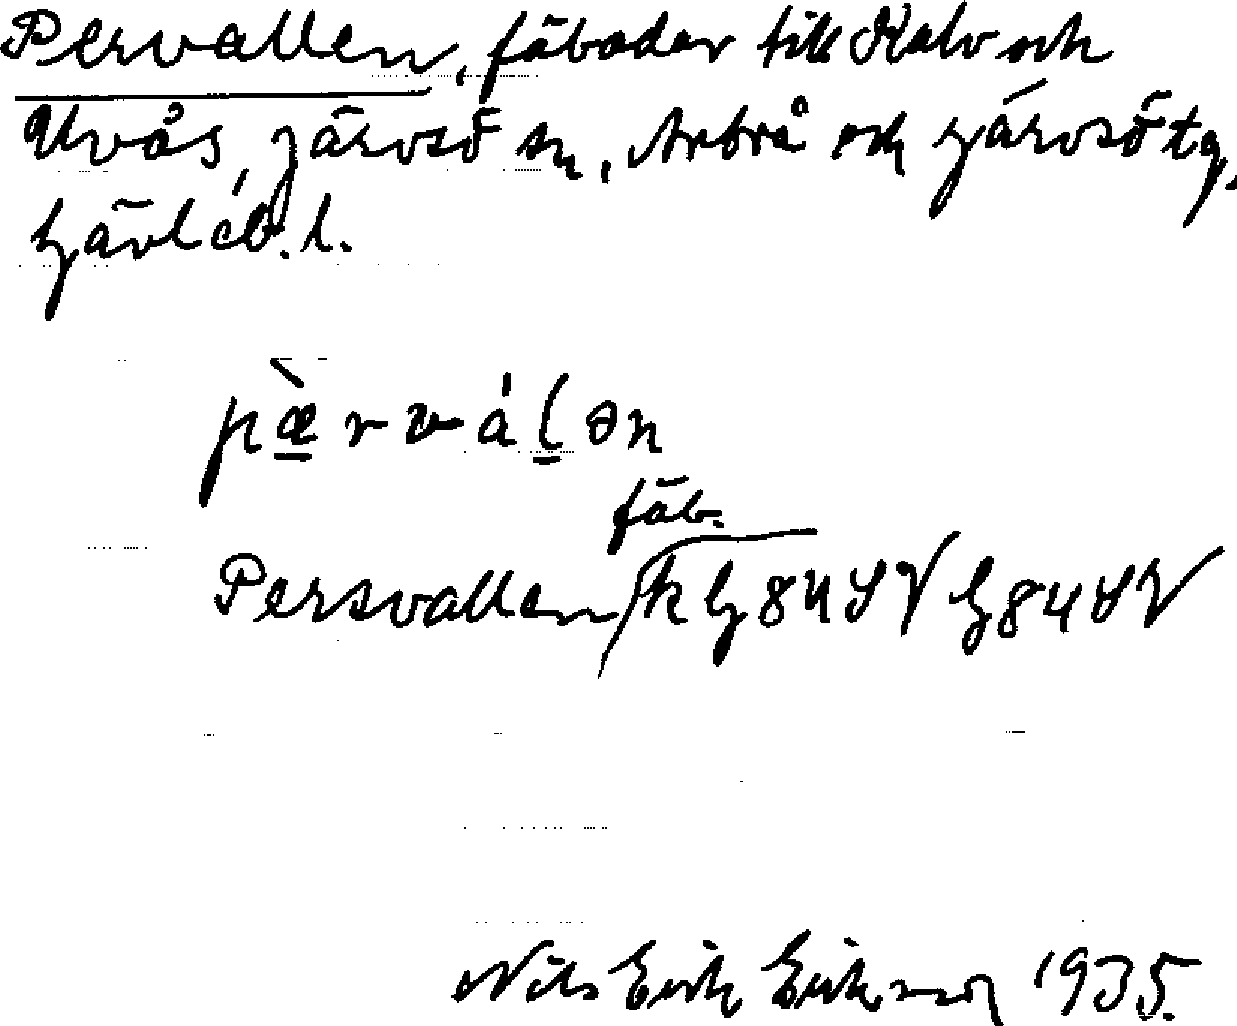 Pervallen, fäbodar till Kalv och
Uvås, Järvsö sn, Arbrå och Järvsö tg,
Gävleb. l.
pæ̀rválən
fäb.
Persvallen k G 84 SV G 84 SV
Nils Erik Eriksson 1935.